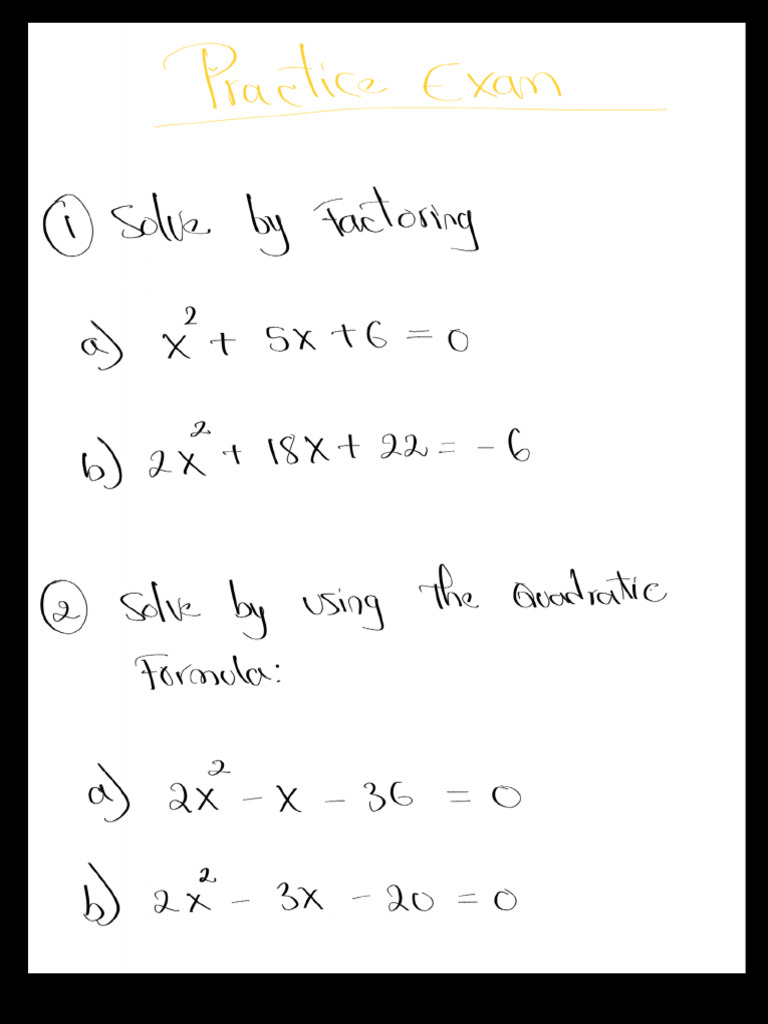 Practice Exam
① Solve by Factoring
a) x² + 5x + 6 = 0
b) 2x² + 18x + 22 = -6
② Solve by using the Quadratic
Formula:
a) 2x² - x - 36 = 0
b) 2x² - 3x - 20 = 0